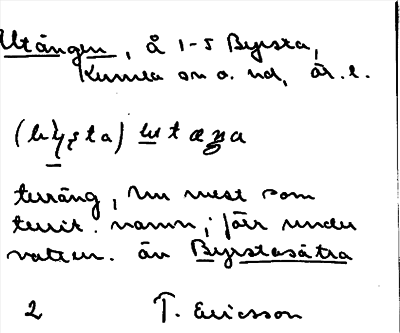 Utängen, å 1-5 Byrsta,
Kumla sn o. hd, ör. l.
(by̱ṣta) u̱tæŋa
terräng, nu mest som
territ. namn; jfr under
natur. än Byrstasätra
2 T. Ericsson